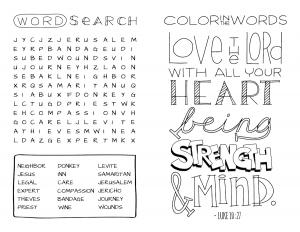 WORD SEARCH
E Y R P B A N D A G E U D I
U J O U R N E Y H Z L A O N
E H C O M P A S S I O N V H
G O C A R E L L E V I T E X
A T H I E V E S M W I N E A
NEIGHBOR DONKEY LEVITE
JESUS INN SAMARITAN
LEGAL CARE JERUSALEM
EXPERT COMPASSION JERICHO
THIEVES BANDAGE JOURNEY
PRIEST WINE WOUNDS
COLOR IN THE WORDS
LOVE THE LORD
WITH ALL YOUR
HEART
being
STRENGTH
& MIND.
- LUKE 10:27